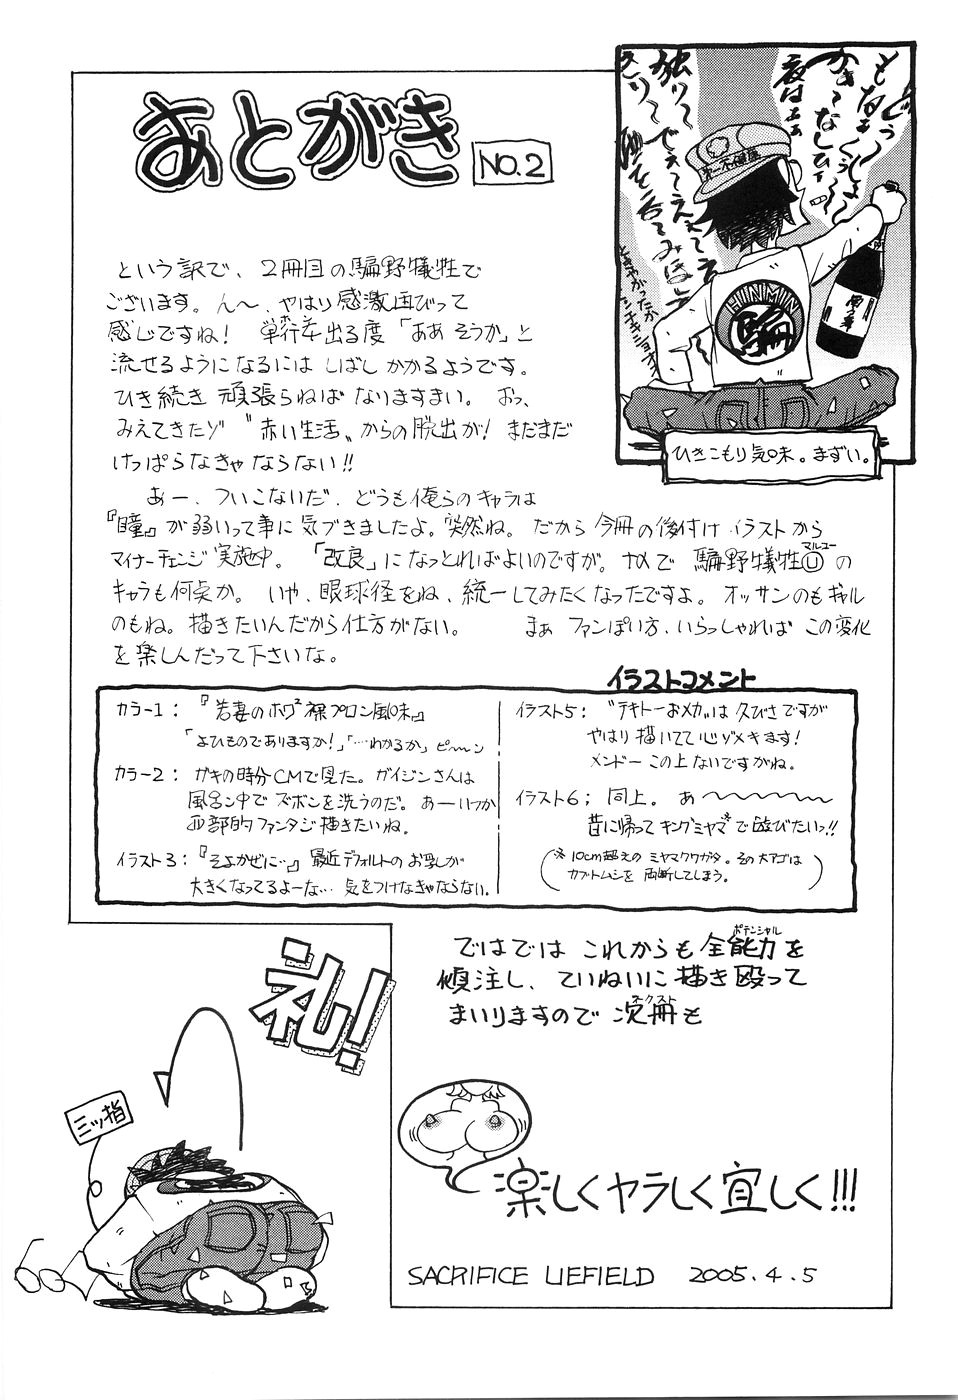 あとがき
NO.2
という訳で、2冊目の騙野犠牲で
ございます。ん〜、やはり感激ﾖﾛｺびって
感じですね！単行本出る度「ああそうか」と
流せるようになるにはしばしかかるようです。
ひき続き頑張らねばなりますまい。おっ、
みえてきたゾ〝赤い生活〟からの脱出が！まだまだ
けっぱらなきゃならない!!
あー、ついこないだ、どうも俺らのキャラは
『瞳』が弱いって事に気づきましたよ。突然ね。だから今冊の後付けイラストから
マイナーチェンジ実施中。「改良」になっとればよいのですが。なので騙野犠牲Ⓤマルユーの
キャラも何点か。いや、眼球径をね、統一してみたくなったですよ。オッサンのもギャル
のもね。描きたいんだから仕方がない。まぁファンぽい方、いらっしゃればこの変化
を楽しんだって下さいな。
ひきこもり気味。まずい。
イラストコメント
カラー1：『若妻のホワ²裸プロン風味』
「よひものでありますか！」「…わかるか」ピーン
カラー2：ガキの時分CMで見た。ガイジンさんは
風呂ン中でズボンを洗うのだ。あーいつか
西部的ファンタジ描きたいね。
イラスト3：『そよかぜに…』最近デフォルトのお乳が
大きくなってるよーな…気をつけなきゃならない。
イラスト5：〝テキトーおメカ〟は久びさですが
やはり描いてて心ゾメキます！
メンドーこの上ないですがね。
イラスト6；同上。あ〜〜〜〜〜
昔に帰ってキングミヤマ※で遊びたいっ!!
（※10cm超えのミヤマクワガタ。その大アゴは
カブトムシを両断してしまう。）
ではではこれからも全能力ポテンシャルを
傾注し、ていねいに描き殴って
まいりますので次冊ネクストも
礼！
三ッ指
楽しくヤラしく宜しく!!!
SACRIFICE LIEFIELD 2005.4.5